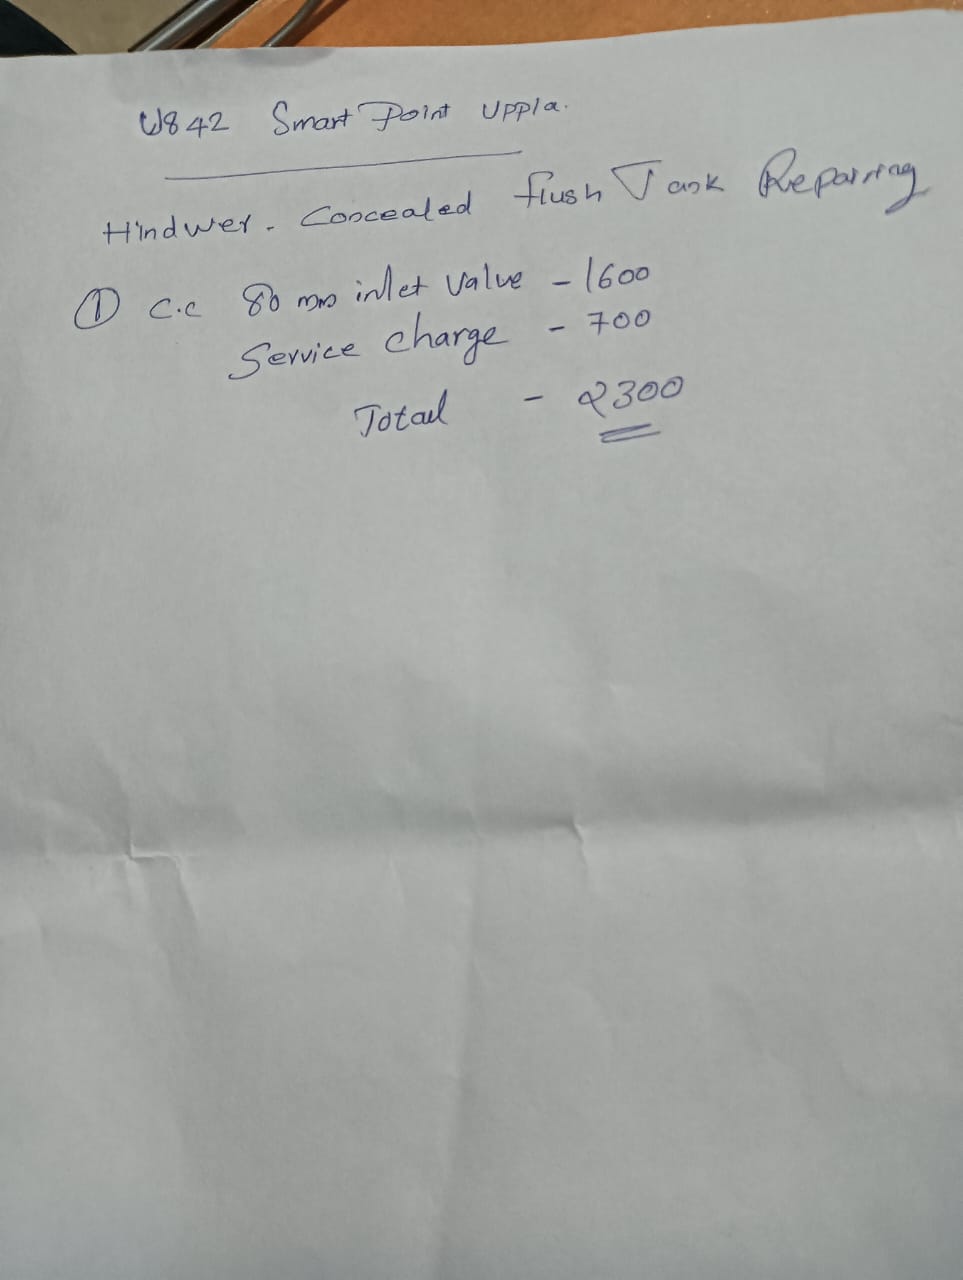 U842 Smart Point Uppla.
Hindwer. Concealed flush Tank Reparring
① C.C 80 mm inlet Valve - 1600
Service charge - 700
Total - 2300